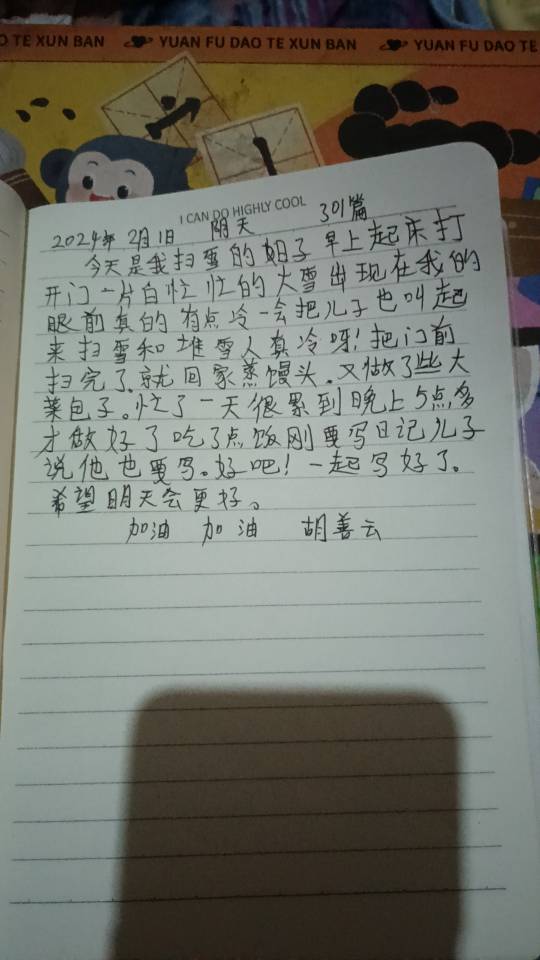 O TE XUN BAN YUAN FU DAO TE XUN BAN YUAN FU DAO TE
I CAN DO HIGHLY COOL
2024年2月1日 阴天 301篇
今天是我扫雪的日子早上起床打
开门一片白忙忙的大雪出现在我的
眼前真的有点冷一会把儿子也叫起
来扫雪和堆雪人真冷呀!把门前
扫完了.就回家蒸馒头.又做了些大
菜包子。忙了一天很累到晚上5点多
才做好了吃了点饭刚要写日记儿子
说他也要写。好吧!一起写好了。
希望明天会更好。
加油 加油 胡善云